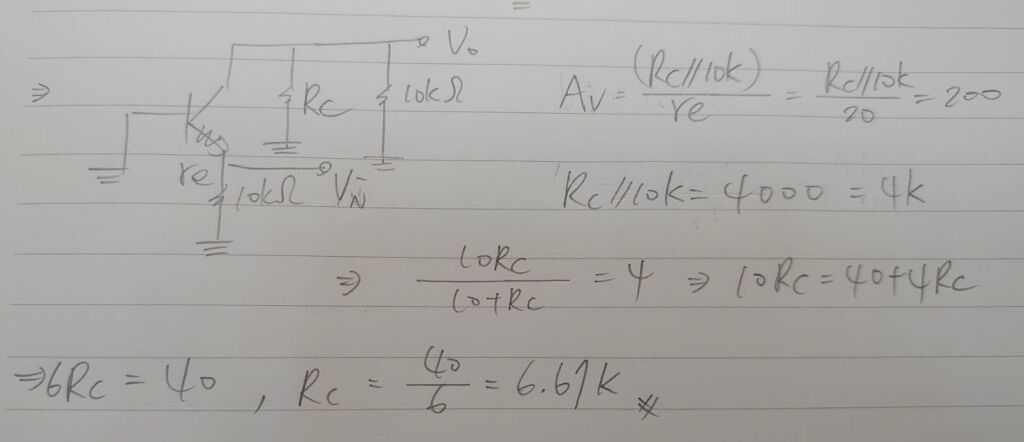 =
⇒ Vo
Rc 10kΩ
re 10kΩ VIN
Av = (Rc//10k)/re = Rc//10k/20 = 200
Rc//10k = 4000 = 4k
⇒ 10Rc/10+Rc = 4 ⇒ 10Rc = 40+4Rc
⇒ 6Rc = 40 , Rc = 40/6 = 6.67k